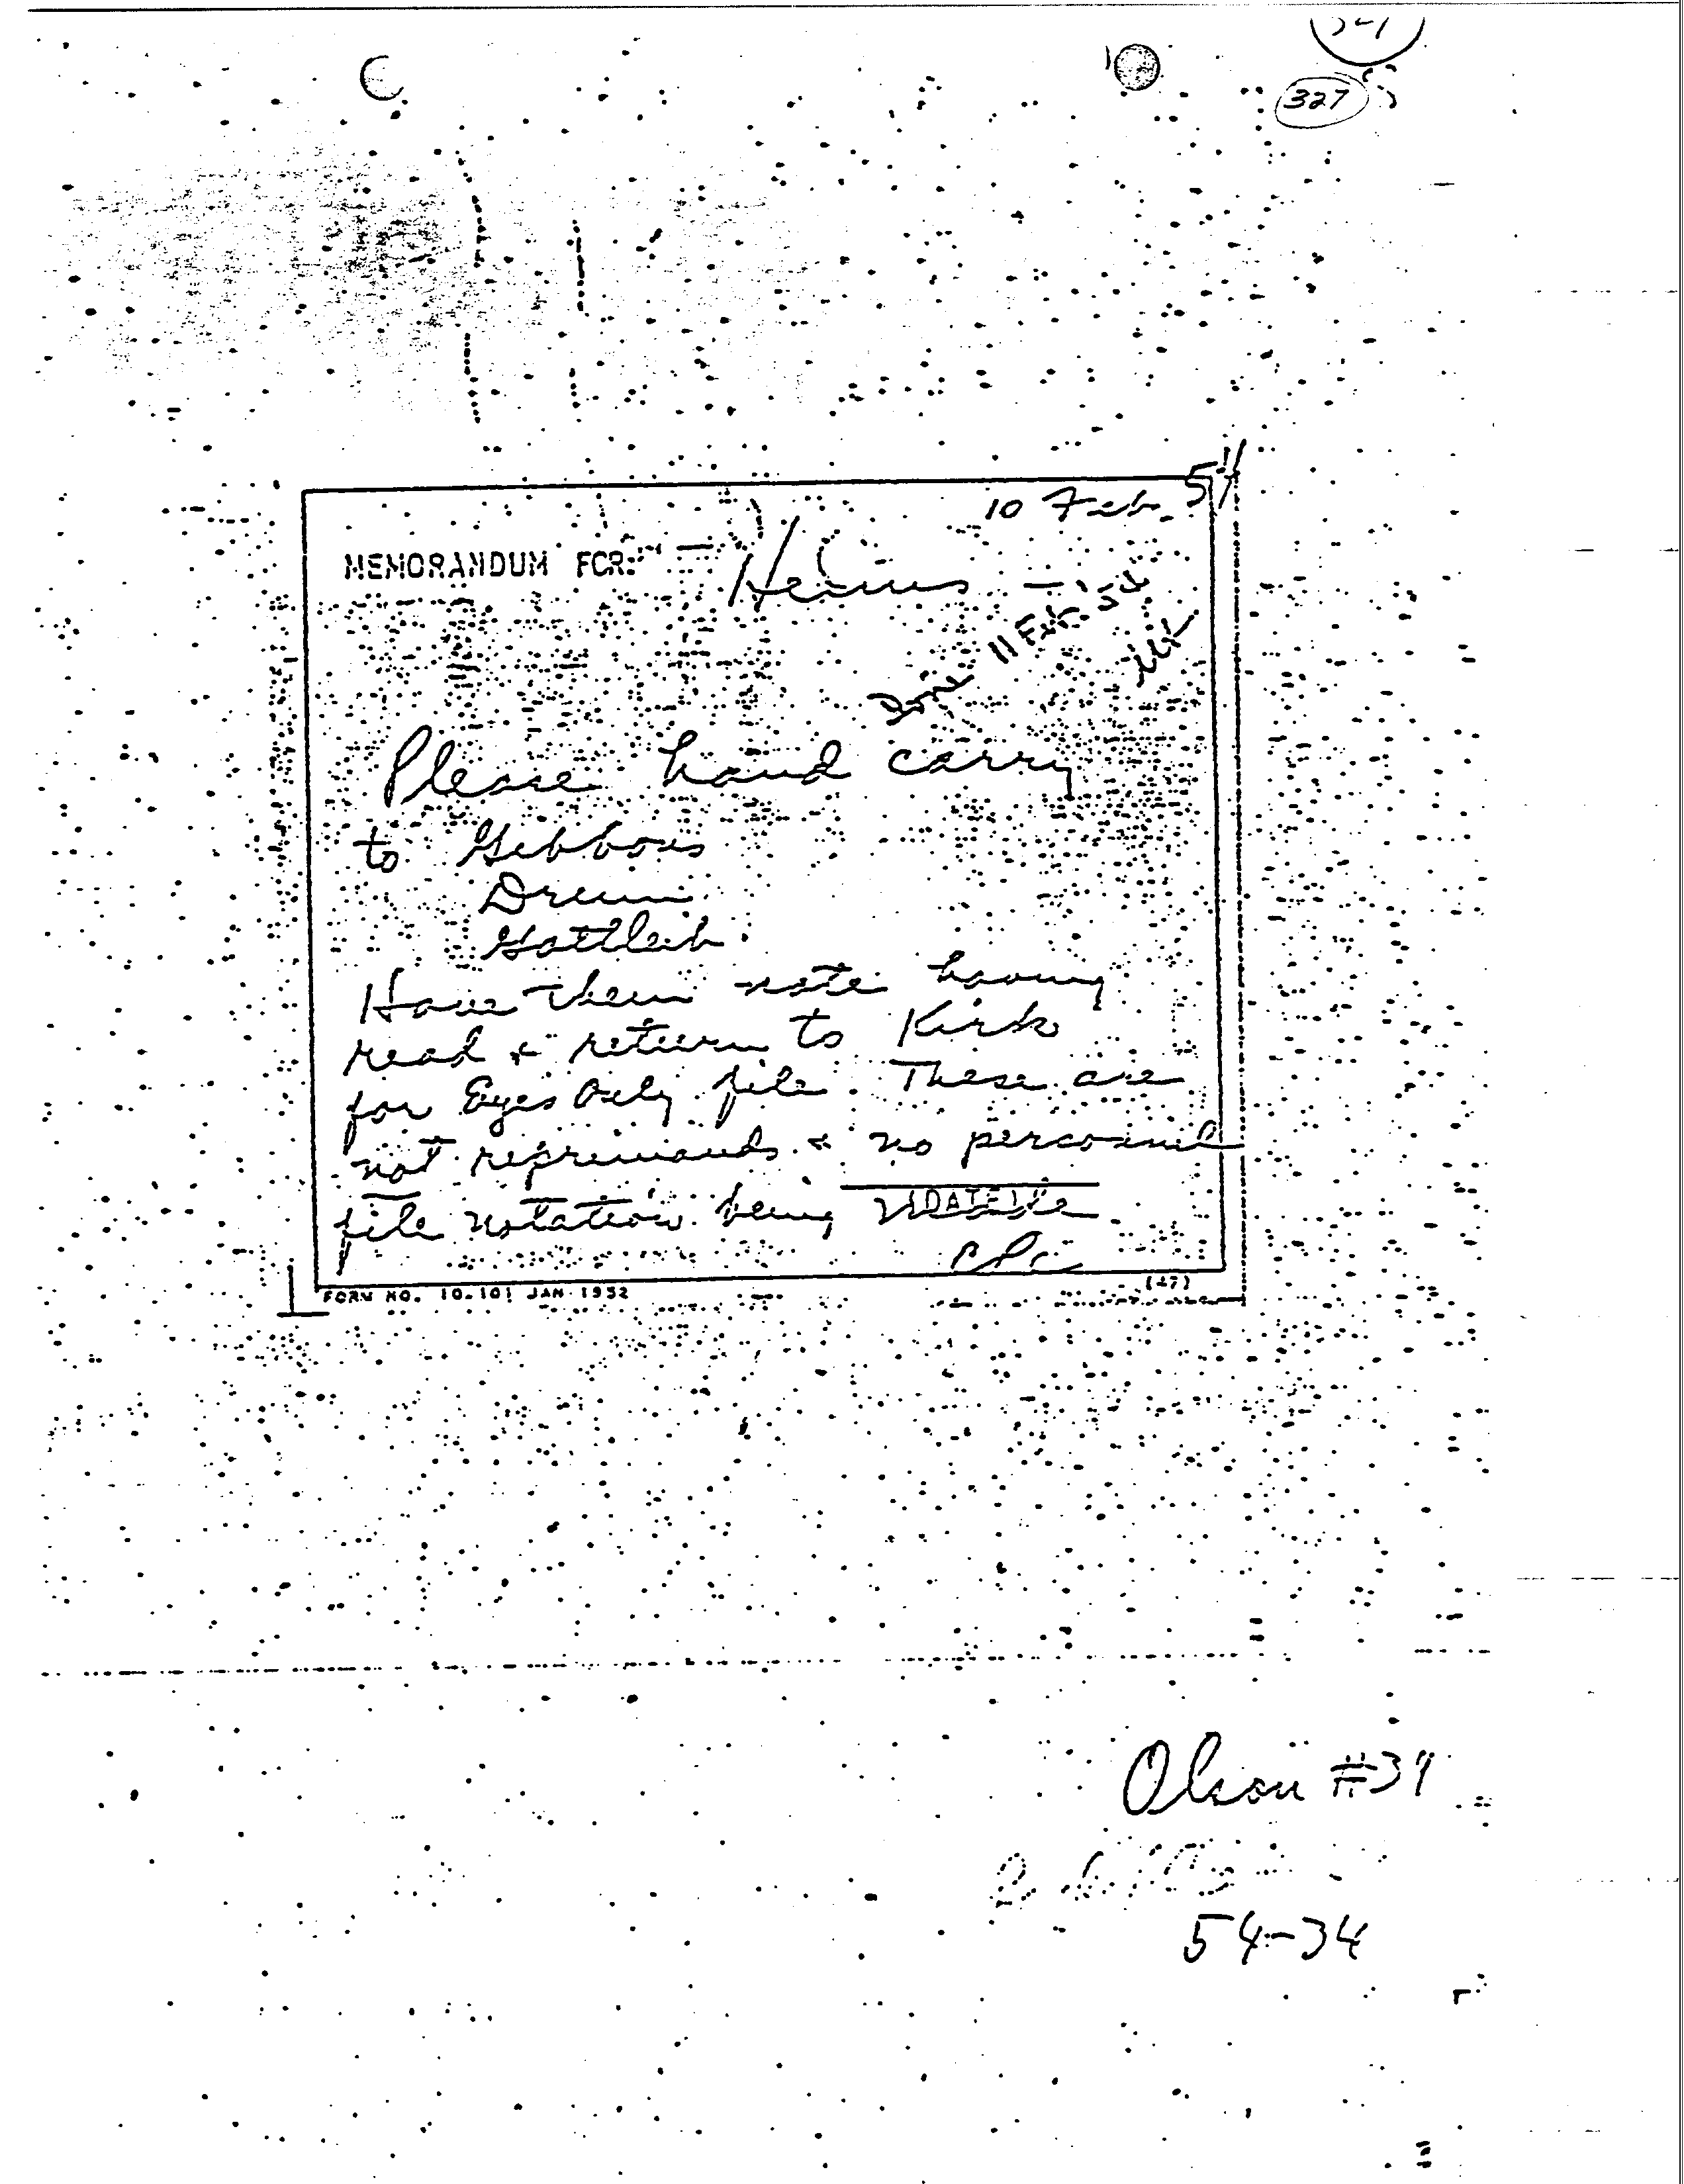 327
10 Feb. 54
MEMORANDUM FOR:
Helms
Done 11 Feb. 54
Please hand carry
to Gibbons
Drum
Gottlieb
Have them note having
read & return to Kirk
for Eyes Only file. These are
not reprimands & no personnel
file notation being made
(DATE)
FORM NO. 10-101 JAN 1952
(47)
Olson #39
54-34